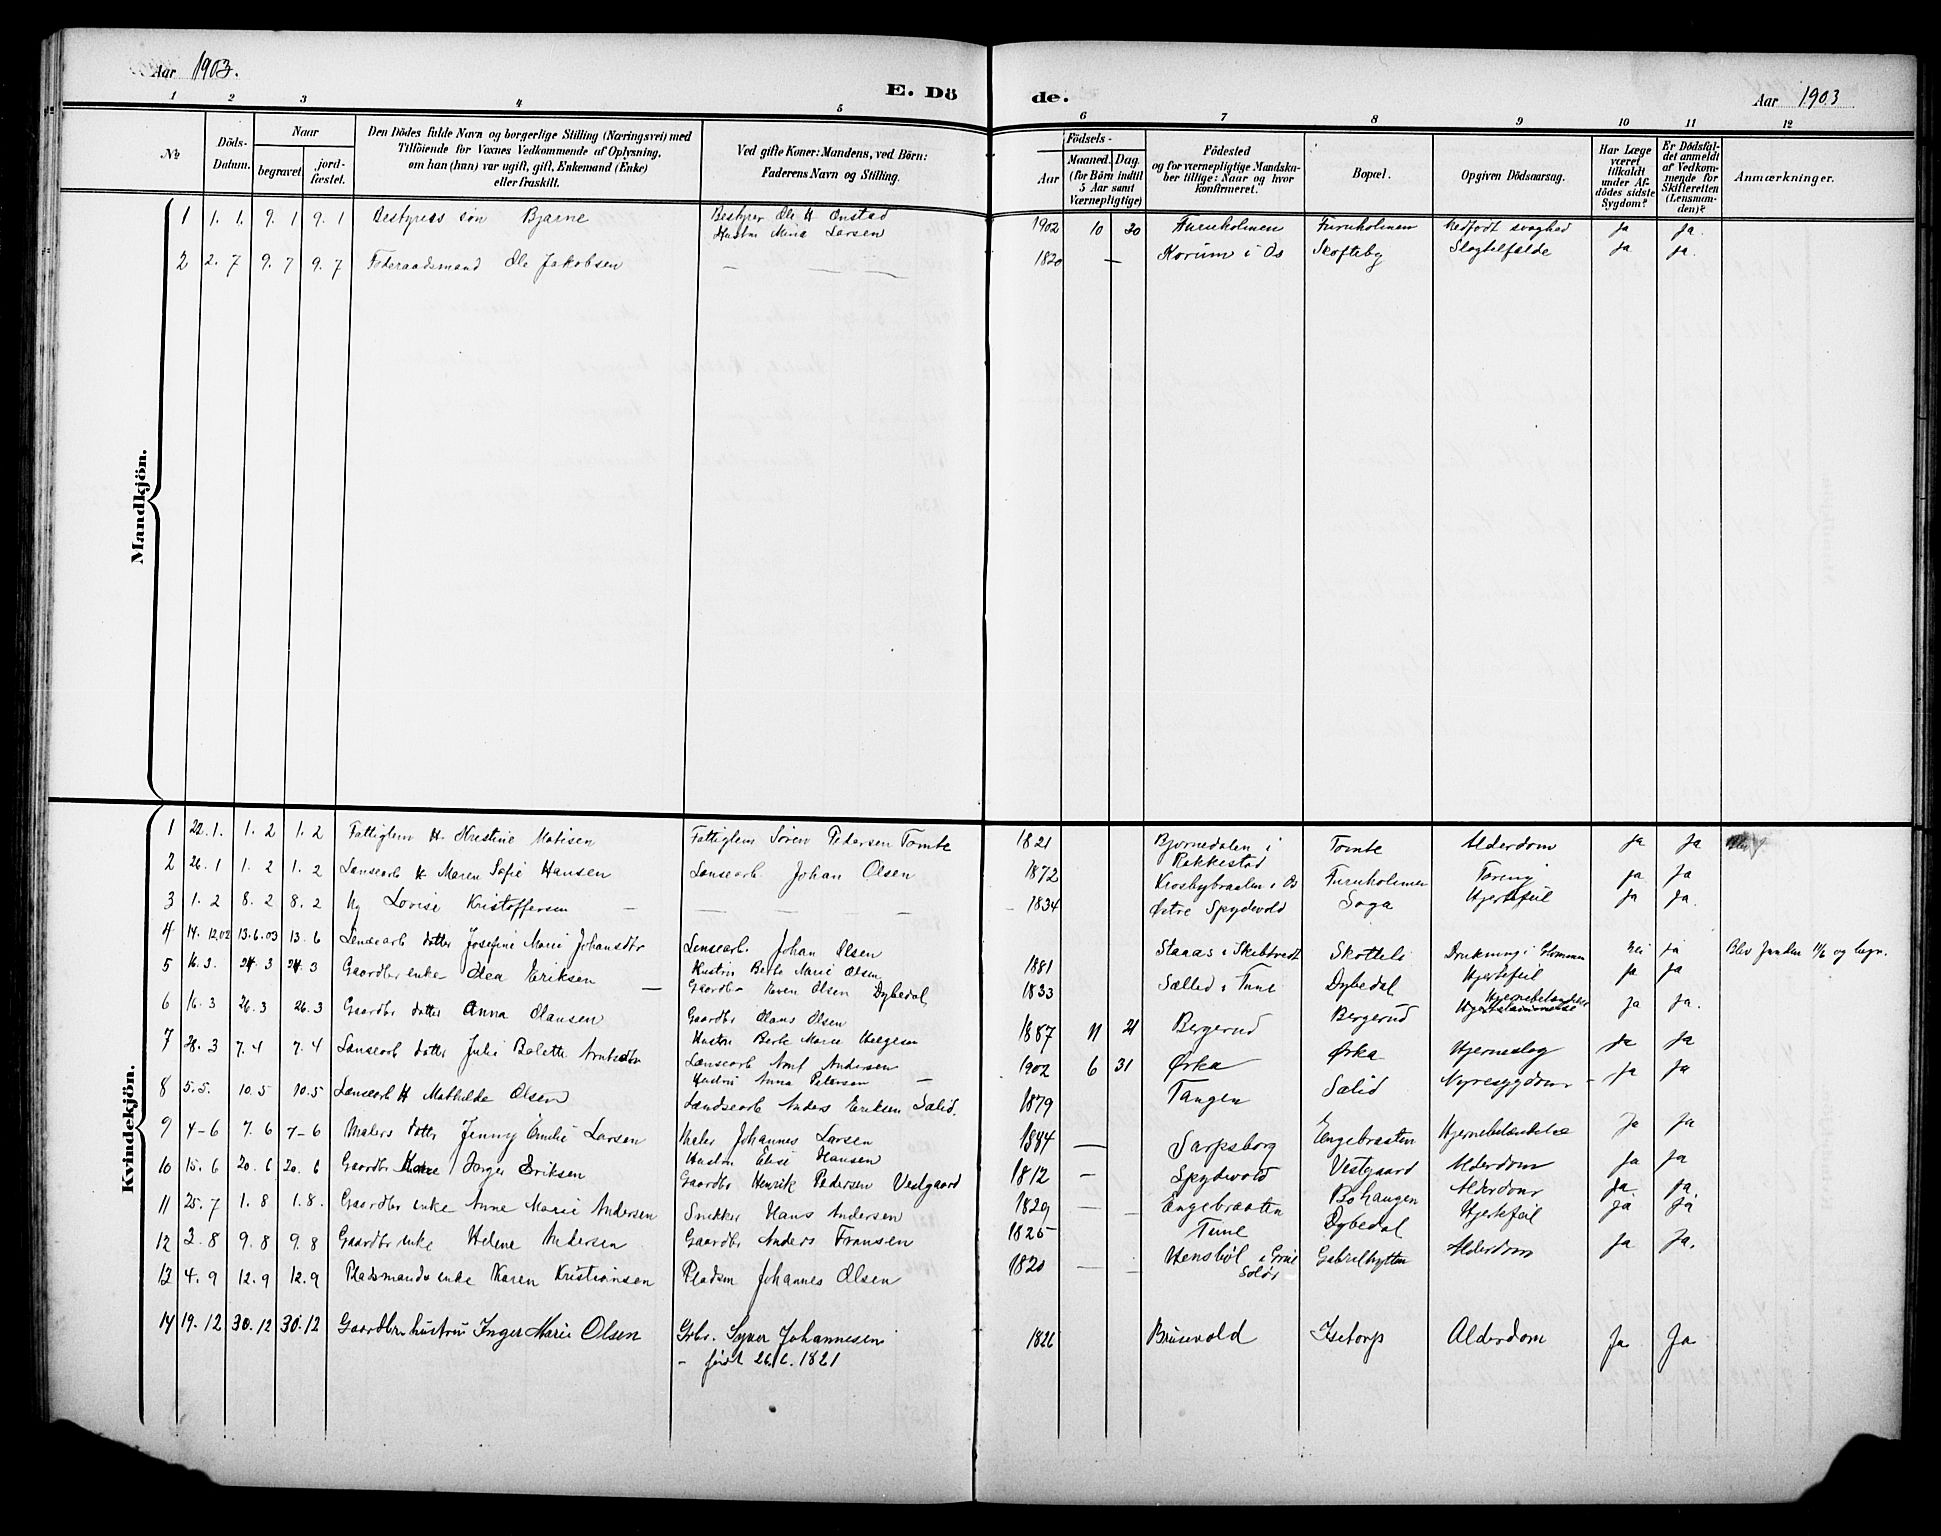 Aar 1903.
E. Dö
de.
Aar 1903
1 2 3 4 5 6 7 8 9 10 11 12
No
Döds-Datum.
Naar
begravet
jord-fæstet.
Den Dödes fulde Navn og borgerlige Stilling (Næringsvei) med
Tilföiende for Voxnes Vedkommende af Oplysning,
om han (hun) var ugift, gift, Enkemand (Enke)
eller fraskilt.
Ved gifte Koner: Mandens, ved Börn:
Faderens Navn og Stilling.
Födsels-
Aar
Maaned. Dag.
(for Börn indtil
5 Aar samt
Værnepligtige)
Födested
og for værnepligtige Mandska-
ber tillige: Naar og hvor
konfirmeret.
Bopæl.
Opgiven Dödsaarsag.
Har Læge
været
tilkaldt
under Af-
dödes sidste
Sygdom?
Er Dödsfal-
det anmeldt
af Vedkom-
mende for
Skifteretten
(Lensman-
den)?
Anmærkninger.
Mandkjön.
1 1. 1. 9. 1 9. 1 Bestyrers sön Bjarne Bestyrer Ole H Onstad 1902 10 20 Furuholmen Furuholmen Medfødt svaghed Ja Ja.
Hustru Mina Larsen
2 2. 7 9. 7 9. 7 Föderaadsmand Ole Jakobsen — — — 1820 — Korum i Os Skofteby Slagtilfælde Ja Ja.
Kvindekjön.
1 22. 1. 1. 2 1. 2 Fattiglem H. Kristine Matisen Fattiglem Sören Pedersen Tomte 1821 Bjørnedalen i Rakkestad Tomte Alderdom Ja Ja
2 26. 1 1. 2 1. 2 Landsearb H. Maren Sofie Hansen Landsearb. Johan Olsen 1872 Krosbybraaten i Os Furuholmen Tæring Ja Ja
3 1. 2 8. 2 8. 2 Ug Lovise Kristoffersen — — — — 1834 Østre Spydevold Soga Hjertefeil Ja Ja.
4 14. 12.02 13.6.03 13. 6 Lensearb datter Josefine Marie Johansdtr Lensearb. Johan Olsen 1881 Staaas i Skibtvedt Skotteli Drukning i Glommen Nei Ja Blev funden 11/6 og begr.
Hustru Berte Marie Olsen
5 16. 3. 24. 3 24. 3 Gaardbr enke Olea Eriksen — Gaardbr Even Olsen Dybedal 1833 Sælled i Tune Dybedal Hjertefeil Ja Ja
6 16. 3 26. 3 26. 3 Gaardbr datter Anna Olausen Gaardbr Olaus Olsen 1887 11 21 Bergerud Bergerud Hjernebetændelse Ja Ja.
Hustru Berte Marie Helgesen
7 28. 3 7. 4 7. 4 Lensearb datter Julie Bolette Lensearb Arnt Andersen 1902 6 31 Ørka Ørka Hjerneslag Ja Ja
Hustru Anna Petersen —
8 5. 5. 10. 5 10. 5 Lensearb H Mathilde Olsen Landsearb Anders Eriksen Sælid. 1879 Tangen Sælid Nyresygdom – Ja Ja
9 4–6 7. 6 7–6 Malers datter Jenny Emilie Larsen Maler Johannes Larsen 1884 — Sarpsborg Engebraaten Hjernebetændelse Ja Ja
Hustru Elise Hansen
10 15. 6 20. 6 20. 6 Gaardbr Kone Inger Eriksen Gaardbr Henrik Pedersen Vestgaard 1812 – Spydevold Vestgaard Alderdom Ja Ja
11 25. 7 1. 8 1. 8. Gaardbr enke Anne Marie Andersen Snekker Hans Andersen 1829 — – Engebraaten Bøhaugen Alderdom Ja. Ja.
12 3. 8 9. 8 9. 8 Gaardbr enke Helene Andersen Gaardbr Anders Fransen 1825 Tune Dybedal Hjertefeil Ja Ja
13 4. 9 12. 9 12. 9 Pladsmands enke Karen Kristiansen Pladsm Johannes Olsen 1820 — – i Grue Solør Gabrielhytten Alderdom Ja Ja.
14 19. 12 30. 12 30. 12 Gaardbr hustru Inger Marie Olsen Grbr. Syver Johannesen 1826 Brusevold Isetorp Alderdom Ja Ja
– født 26/6. 1821